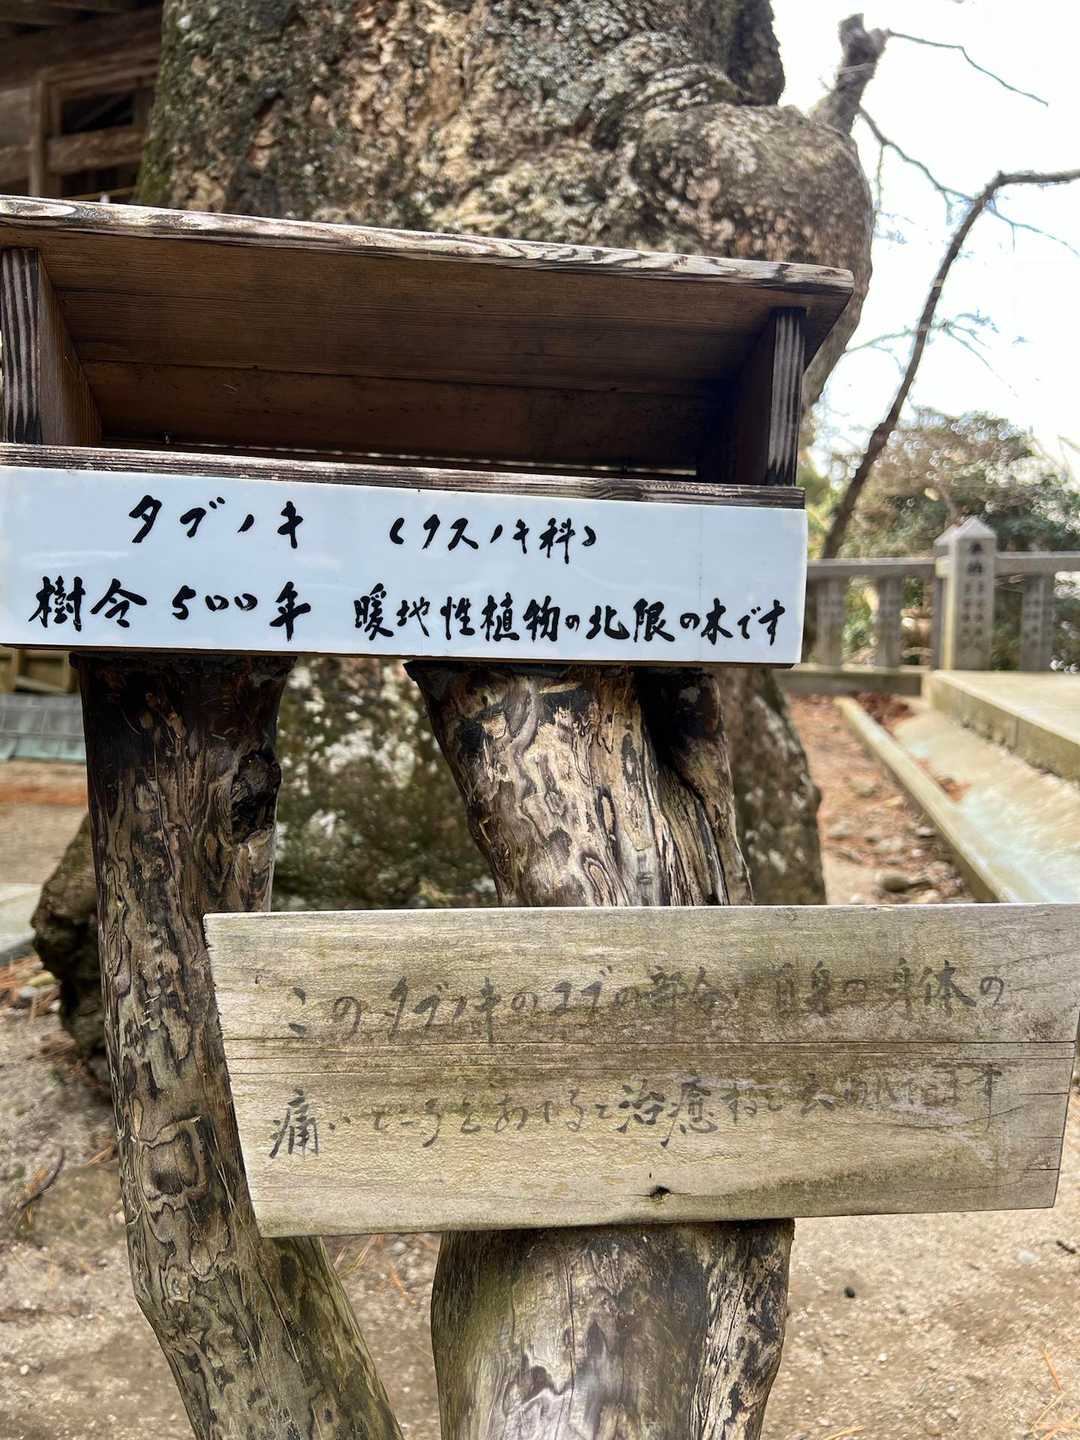 タブノキ （クスノキ科）
樹令500年 暖地性植物の北限の木です
このタブノキのコブの部分に自身の身体の
痛いところをあせると治癒
奉納